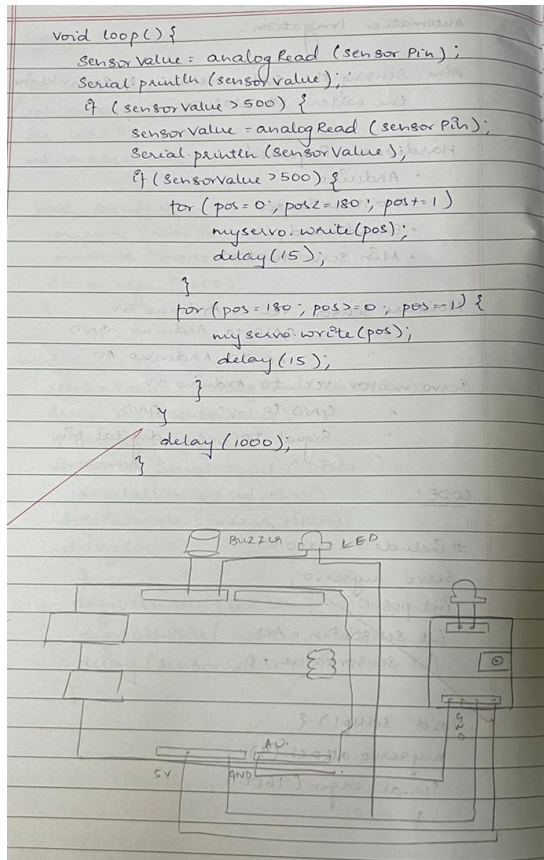 void loop() {
sensorvalue = analogRead (sensor Pin);
Serial.println (sensorvalue);
if (sensorvalue > 500) {
sensorvalue = analogRead (sensor Pin);
Serial.println (sensorvalue);
if (sensorvalue > 500) {
for (pos = 0; pos <= 180; pos += 1)
myservo.write(pos);
delay(15);
}
for (pos = 180; pos >= 0; pos -= 1) {
myservo.write(pos);
delay(15);
}
}
delay(1000);
}
BUZZER LED
5V GND GND